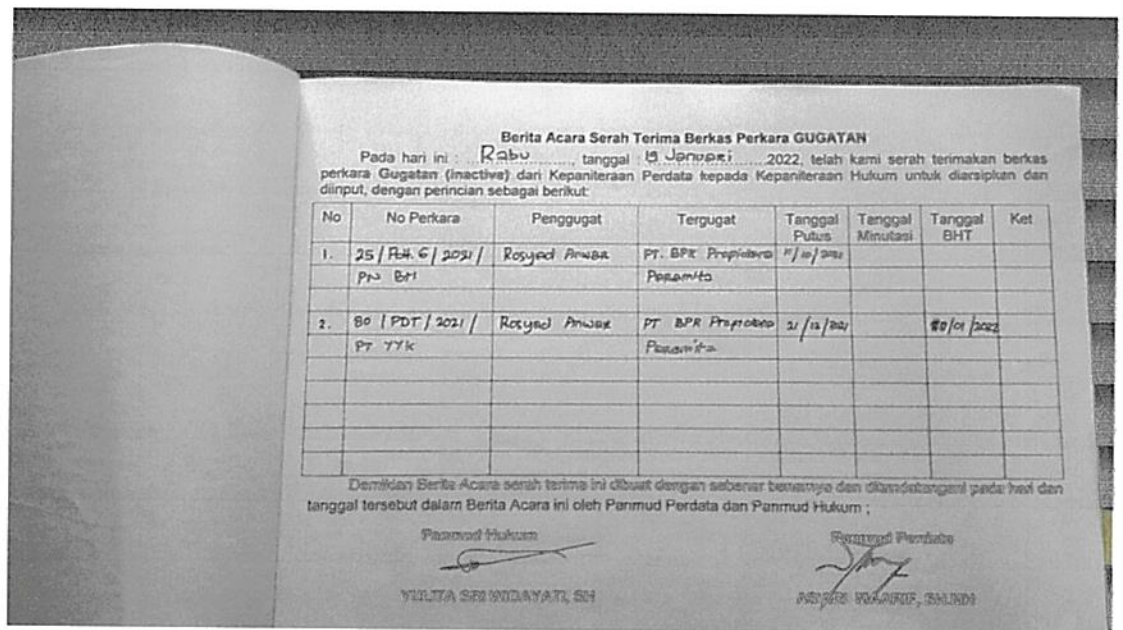 Berita Acara Serah Terima Berkas Perkara GUGATAN
Pada hari ini : Rabu, tanggal : 19 Januari 2022, telah kami serah terimakan berkas
perkara Gugatan (inactive) dari Kepaniteraan Perdata kepada Kepaniteraan Hukum untuk diarsipkan dan
diinput, dengan perincian sebagai berikut:
No No Perkara Penggugat Tergugat Tanggal Putus Tanggal Minutasi Tanggal BHT Ket
1. 25 / Pdt. G / 2021 / Rosyad Anwar PT. BPR
PN Paramita
2. 80 / PDT / 2021 / Rosyad Anwar PT BPR 21/12/2021 /01/2022
PT YYK Paramita
Demikian Berita Acara serah terima ini dibuat dengan sebenar benarnya dan ditandatangani pada hari dan
tanggal tersebut dalam Berita Acara ini oleh Panmud Perdata dan Panmud Hukum ;
Panmud Hukum Panmud Perdata
YULITA SRI WIDAYATI, SH MAARIF, SH.MH